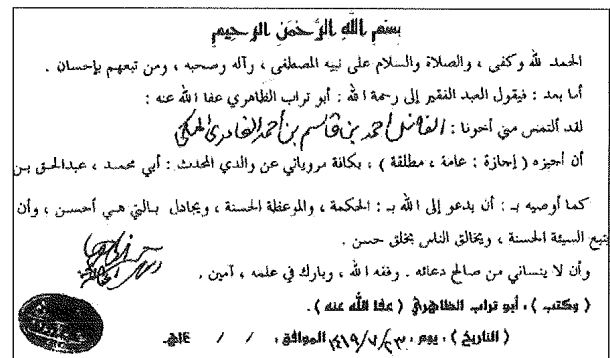 بسم الله الرحمن الرحيم
الحمد لله وكفى ، والصلاة والسلام على نبيه المصطفى ، وآله وصحبه ، ومن تبعهم بإحسان .
أما بعد : فيقول العبد الفقير إلى رحمة الله : أبو تراب الظاهري عفا الله عنه :
لقد ألتمس مني أخونا : الفاضل أحمد بن قاسم بن أحمد الغامدي المكي
أن أجيزه ( إجازة : عامة ، مطلقة ) ، بكافة مروياتي عن والدي المحدث : أبي محمد ، عبدالحق بن
كما أوصيه بـ : أن يدعو إلى الله بـ : الحكمة ، والموعظة الحسنة ، ويجادل بالتي هي أحسن ، وأن
يتبع السيئة الحسنة ، ويخالق الناس بخلق حسن .
وأن لا ينساني من صالح دعائه . وفقه الله ، وبارك في علمه ، آمين .
( وكتب ) : أبو تراب الظاهري ( عفا الله عنه ) .
( التاريخ ) : يوم : ٢٣/٧/١٤١٩ الموافق : / / ١٤هـ